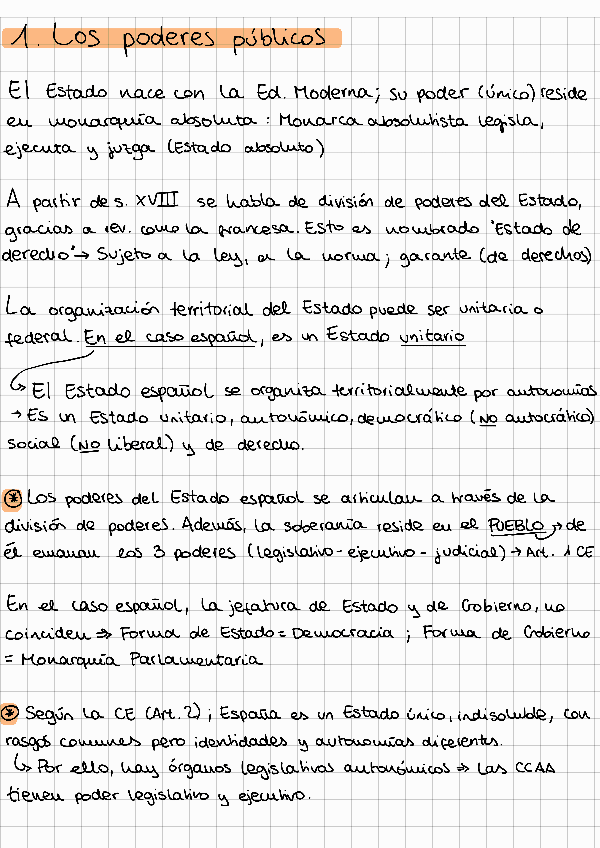 1. Los poderes públicos
El Estado nace con la Ed. Moderna; su poder (único) reside
en monarquía absoluta: Monarca absolutista legisla,
ejecuta y juzga (Estado absoluto)
A partir de s. XVIII se habla de división de poderes del Estado,
gracias a rev. como la francesa. Esto es nombrado "Estado de
derecho" → Sujeto a la ley, a la norma; garante (de derechos)
La organización territorial del Estado puede ser unitaria o
federal. En el caso español, es un Estado unitario
↳ El Estado español se organiza territorialmente por autonomías
→ Es un Estado unitario, autonómico, democrático (NO autocrático)
social (NO liberal) y de derecho.
* Los poderes del Estado español se articulan a través de la
división de poderes. Además, la soberanía reside en el PUEBLO → de
él emanan los 3 poderes (legislativo - ejecutivo - judicial) → Art. 1 CE
En el caso español, la jefatura de Estado y de Gobierno, no
coinciden ⇒ Forma de Estado = Democracia ; Forma de Gobierno
= Monarquía Parlamentaria
* Según la CE (Art. 2) ; España es un Estado único, indisoluble, con
rasgos comunes pero identidades y autonomías diferentes.
↳ Por ello, hay órganos legislativos autonómicos ⇒ Las CCAA
tienen poder legislativo y ejecutivo.